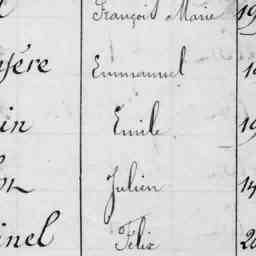 François Marie 19
nfére Emmanuel
in Emile 19
Julien 14
inel Félix 20